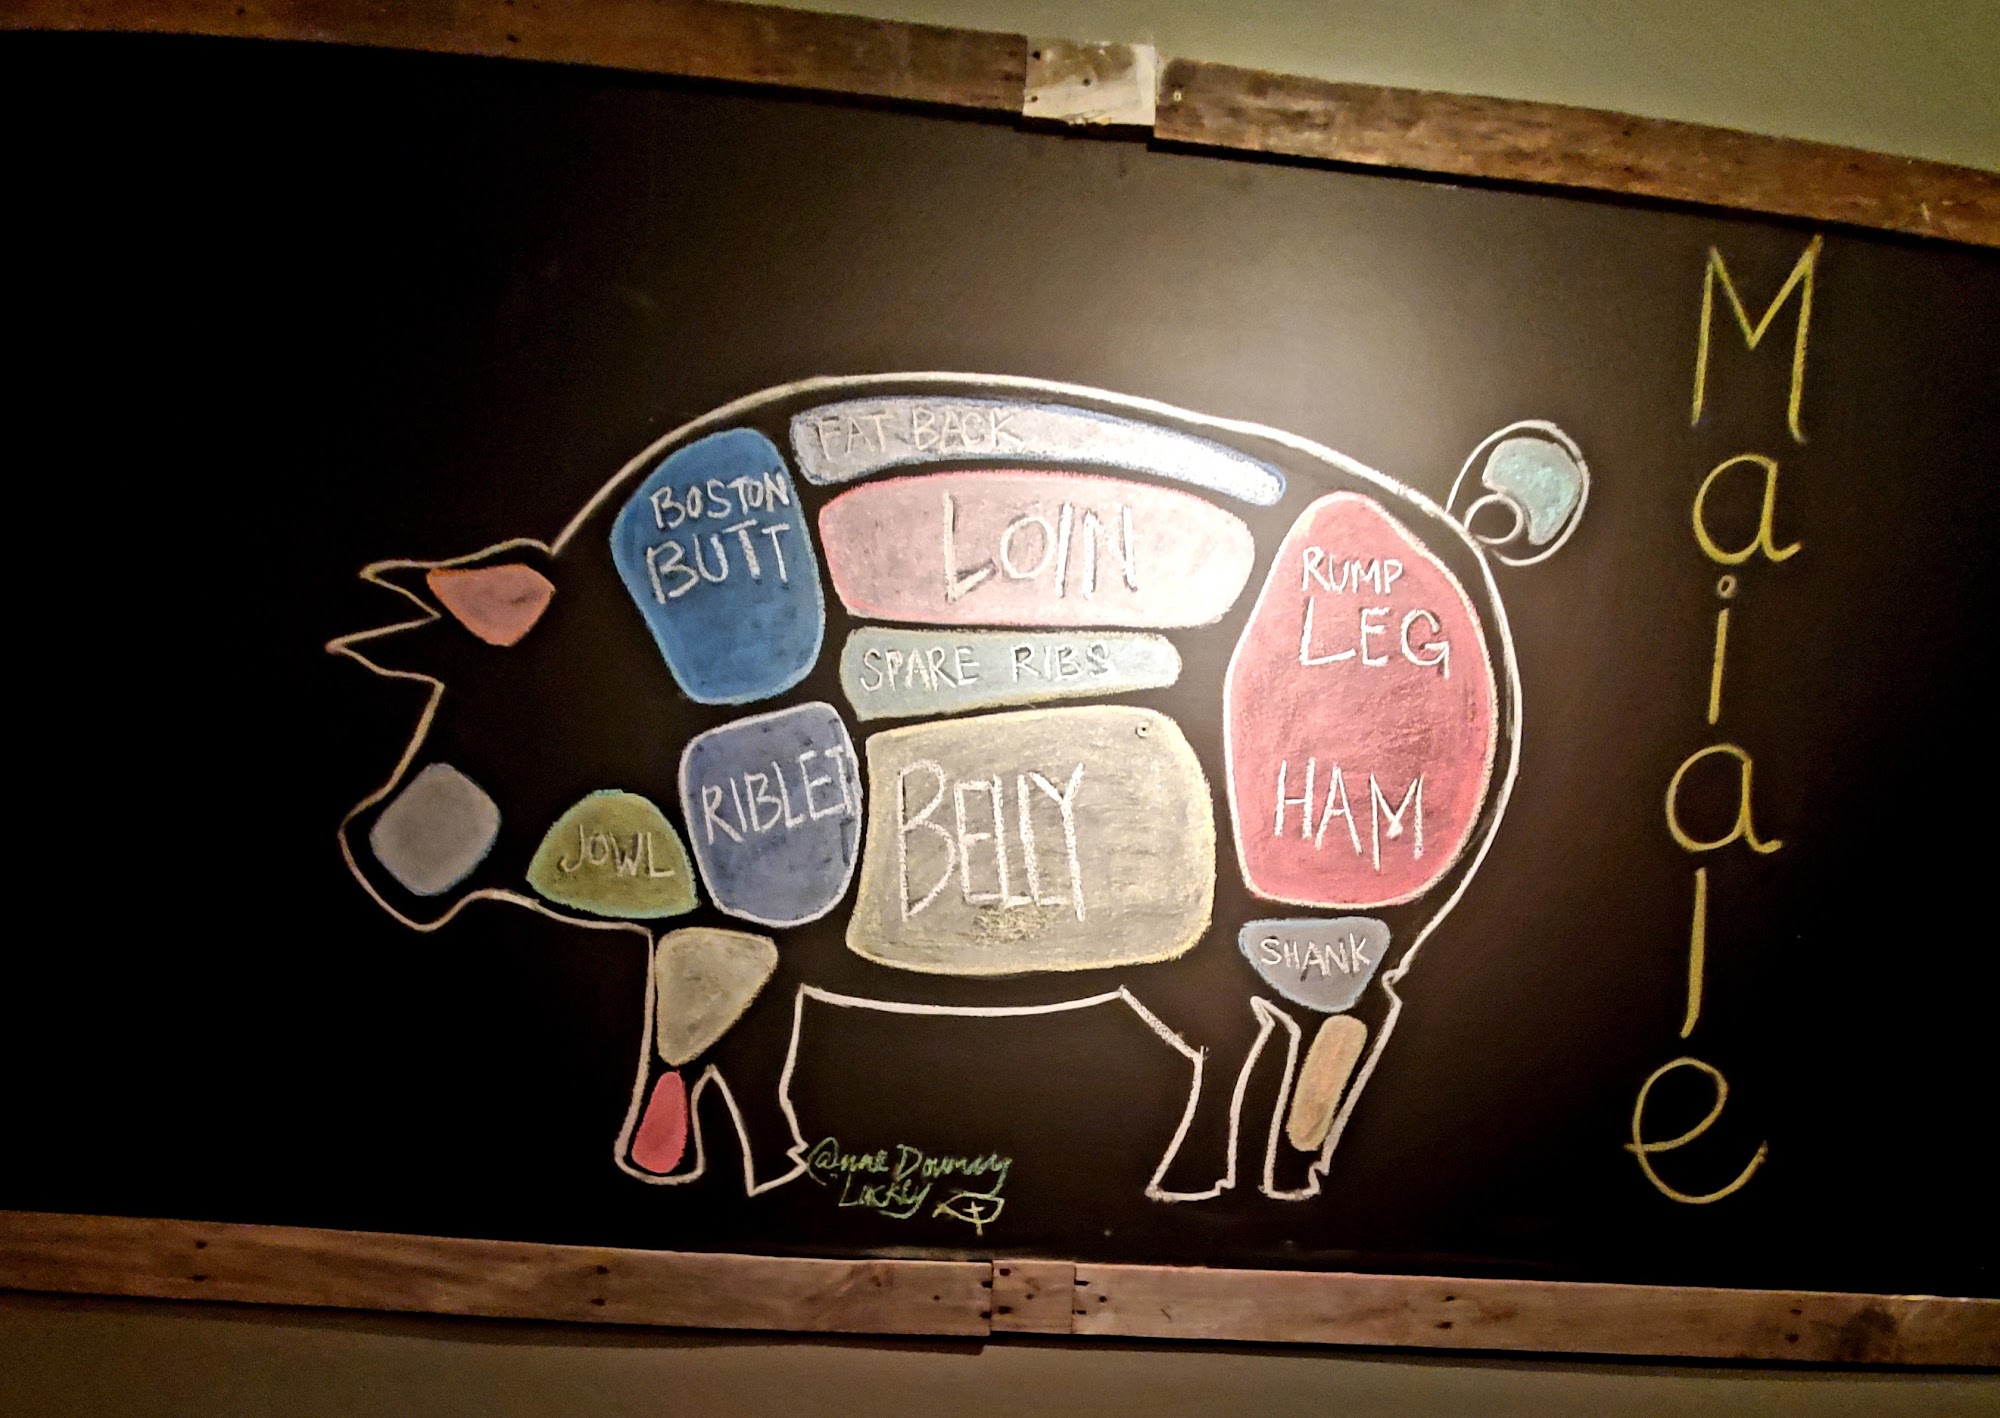 FAT BACK
BOSTON
BUTT
LOIN
SPARE RIBS
RUMP
LEG
HAM
RIBLET
BELLY
JOWL
SHANK
Maiale
@nne Downey
Lackey